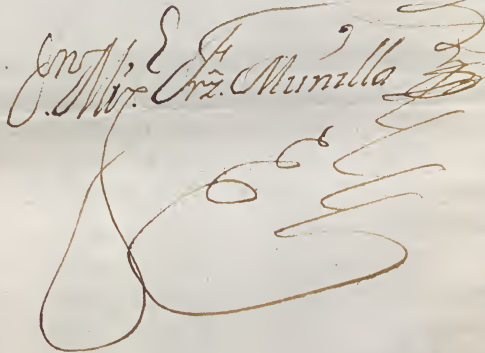 D.n Mig.l Frz. Munilla